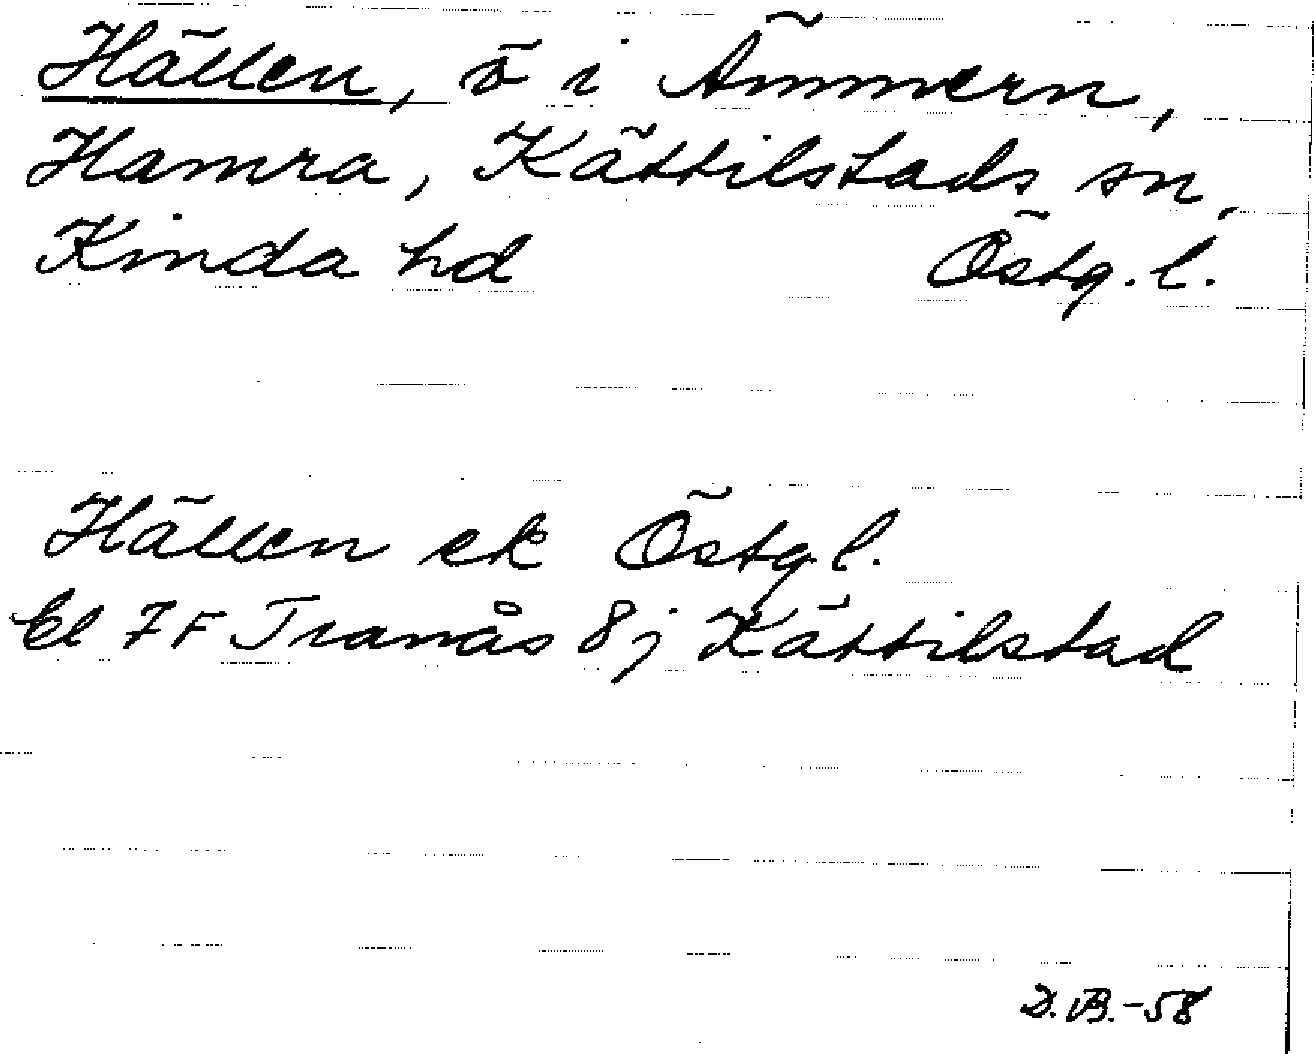 Hällen, ö i Ämmern,
Hamra, Kättilstads sn,
Kinda hd Östg. l.
Hällen ek Östg l.
bl 7F Tranås 8j Kättilstad
D.B.-58